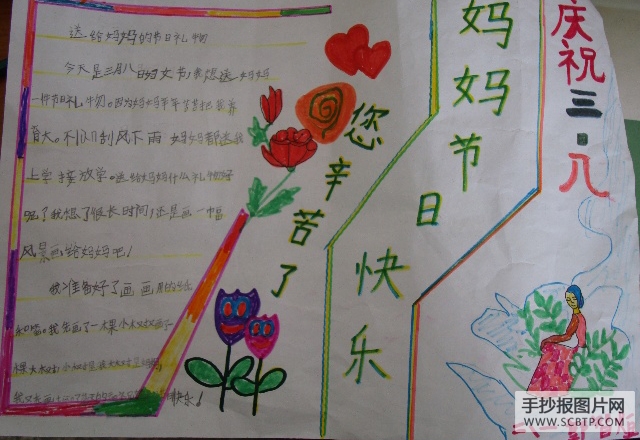 送给妈妈的节日礼物
今天是三月八日妇女节,我想送妈妈
一件节日礼物。因为妈妈辛辛苦苦把我养
育大。不仅刮风下雨 妈妈都送我
上学接放学。送给妈妈什么礼物好
呢?我想了很长时间,还是画一幅
风景画给妈妈吧!
我准备好了画画用的纸
和笔。我先画了一棵小
快乐!
您辛苦了
妈妈节日快乐
庆祝三·八
手抄报图片网
www.SCBTP.com